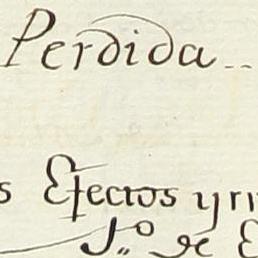 Perdida..
s Efectos y ri
J.º de E